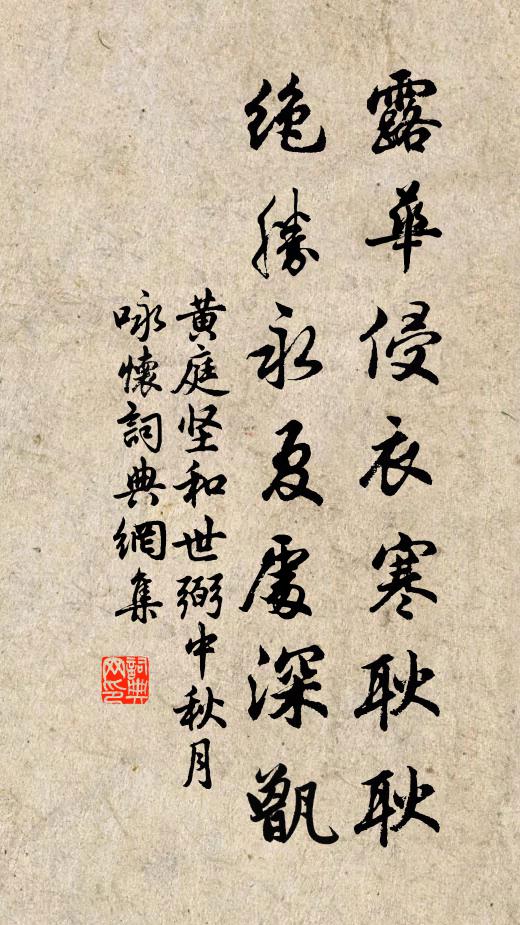 露華侵衣寒耿耿
絶勝永夏處深甑
黄庭坚和世弼中秋月
咏懷詞典網集
詞典网印